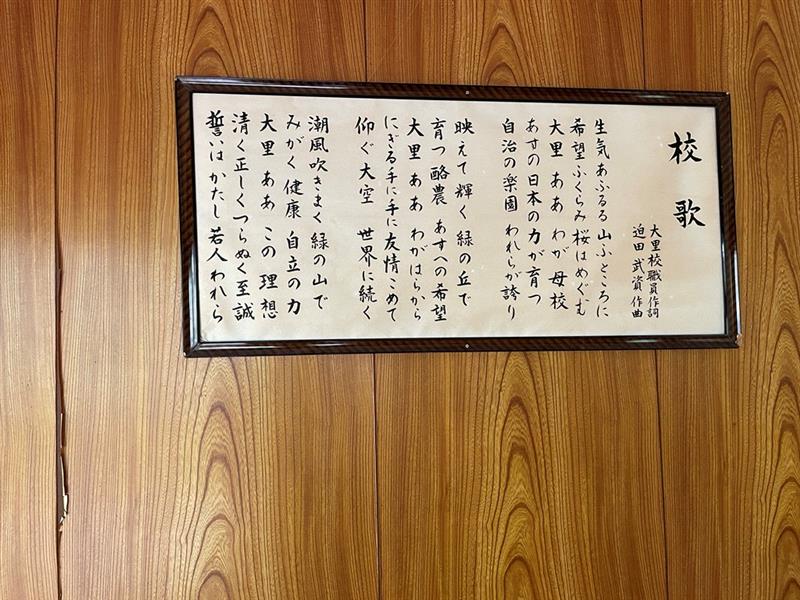 校歌
大里校職員作詞
迫田武資作曲
生気あふるる 山ふところに
希望ふくらみ 桜はめぐむ
大里 ああ わが 母校
あすの日本の 力が育つ
自治の楽園 われらが誇り
映えて輝く 緑の丘で
育つ酪農 あすへの希望
大里 ああ わがはらから
にぎる手に手に 友情こめて
仰ぐ大空 世界に続く
潮風吹きまく 緑の山で
みがく健康 自立の力
大里 ああ この 理想
清く正しく つらぬく至誠
誓いはかたし 若人われら